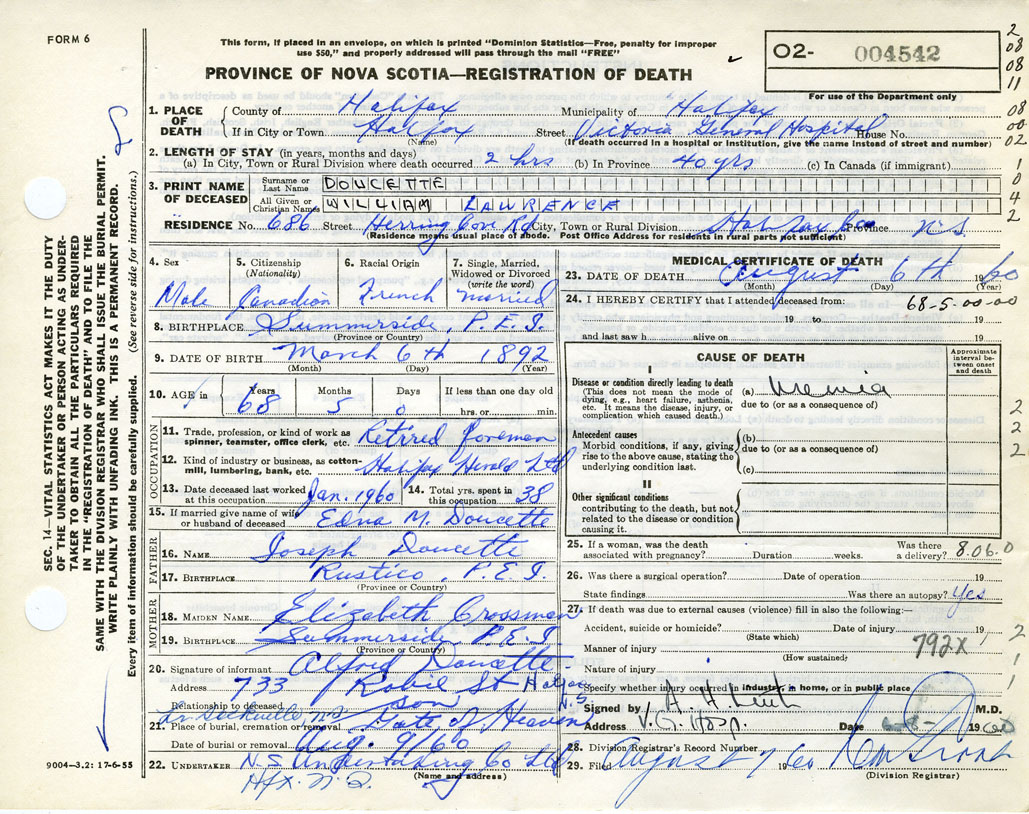 FORM 6
This form, if placed in an envelope, on which is printed "Dominion Statistics—Free, penalty for improper
use $50," and properly addressed will pass through the mail "FREE"
O2- 004542
For use of the Department only
PROVINCE OF NOVA SCOTIA—REGISTRATION OF DEATH
2
08
08
11
08
00
02
1
0
4
2
1. PLACE OF DEATH County of Halifax Municipality of Halifax
If in City or Town Halifax Street Victoria General Hospital House No.
(Name) (If death occurred in a hospital or institution, give the name instead of street and number)
2. LENGTH OF STAY (in years, months and days)
(a) In City, Town or Rural Division where death occurred 2 hrs (b) In Province 40 yrs (c) In Canada (if immigrant)
3. PRINT NAME OF DECEASED Surname or Last Name DOUCETTE
All Given or Christian Names WILLIAM LAWRENCE
RESIDENCE No. 686 Street Herring Cove Rd City, Town or Rural Division Halifax Co Province N.S
(Residence means usual place of abode. Post Office Address for residents in rural parts not sufficient)
4. Sex Male
5. Citizenship (Nationality) Canadian
6. Racial Origin French
7. Single, Married, Widowed or Divorced (write the word) Married
8. BIRTHPLACE Summerside, P.E.I.
(Province or Country)
9. DATE OF BIRTH March 6th 1892
(Month) (Day) (Year)
10. AGE in Years 68 Months 5 Days 0 If less than one day old
hrs. or min.
OCCUPATION
11. Trade, profession, or kind of work as spinner, teamster, office clerk, etc. Retired foreman
12. Kind of industry or business, as cotton-mill, lumbering, bank, etc. Halifax Herald Ltd
13. Date deceased last worked at this occupation Jan. 1960
14. Total yrs. spent in this occupation 38
15. If married give name of wife or husband of deceased Edna M. Doucette
FATHER
16. NAME Joseph Doucette
17. BIRTHPLACE Rustico, P.E.I.
(Province or Country)
MOTHER
18. MAIDEN NAME Elizabeth Crossman
19. BIRTHPLACE Summerside P.E.I
(Province or Country)
20. Signature of informant Alfred Doucette
Address 733 St Halifax N.S.
Relationship to deceased son
Lr Sackville N.S
21. Place of burial, cremation or removal Gate of Heaven
Date of burial or removal Aug. 9/60
22. UNDERTAKER N.S Undertaking Co Ltd
(Name and address)
Hfx. N.S.
MEDICAL CERTIFICATE OF DEATH
23. DATE OF DEATH August 6th 1960
(Month) (Day) (Year)
24. I HEREBY CERTIFY that I attended deceased from: 68-5-00-00
19 to 19
and last saw h alive on 19
CAUSE OF DEATH
Approximate interval between onset and death
I
Disease or condition directly leading to death
(This does not mean the mode of dying, e.g., heart failure, asthenia, etc. It means the disease, injury, or complication which caused death.)
(a) Uremia
due to (or as a consequence of)
Antecedent causes
Morbid conditions, if any, giving rise to the above cause, stating the underlying condition last.
(b)
due to (or as a consequence of)
(c)
2
2
2
II
Other significant conditions
contributing to the death, but not related to the disease or condition causing it.
25. If a woman, was the death associated with pregnancy? Duration weeks. Was there a delivery? 8.06.0
26. Was there a surgical operation? Date of operation 19
State findings Was there an autopsy? Yes
27. If death was due to external causes (violence) fill in also the following:—
Accident, suicide or homicide? Date of injury 19
(State which)
Manner of injury 792X
(How sustained)
Nature of injury
Specify whether injury occurred in industry, in home, or in public place
2
1
1
Signed by M.D.
Address V. G. Hosp. Date 1960
28. Division Registrar's Record Number
29. Filed August 9 1960
(Division Registrar)
SEC. 14—VITAL STATISTICS ACT MAKES IT THE DUTY
OF THE UNDERTAKER OR PERSON ACTING AS UNDER-
TAKER TO OBTAIN ALL THE PARTICULARS REQUIRED
IN THE "REGISTRATION OF DEATH" AND TO FILE THE
SAME WITH THE DIVISION REGISTRAR WHO SHALL ISSUE THE BURIAL PERMIT.
WRITE PLAINLY WITH UNFADING INK. THIS IS A PERMANENT RECORD.
Every item of information should be carefully supplied. (See reverse side for instructions.)
9004—3,2: 17-6-55